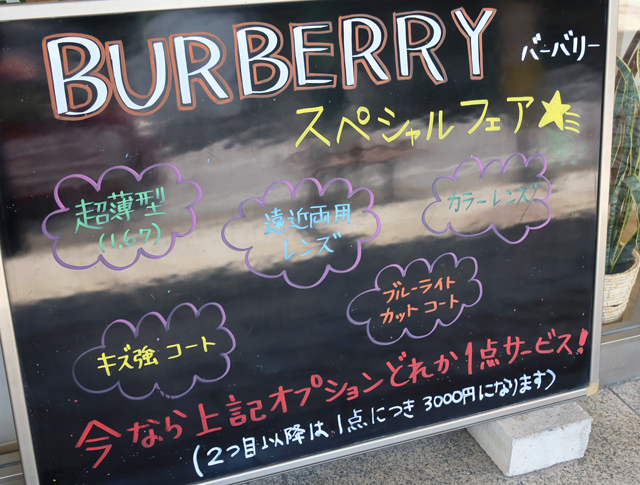 BURBERRY バーバリー
スペシャルフェア
超薄型
(1.67)
遠近両用
レンズ
カラーレンズ
キズ強コート
ブルーライト
カットコート
今なら上記オプションどれか1点サービス!
(2つ目以降は1点につき3000円になります)